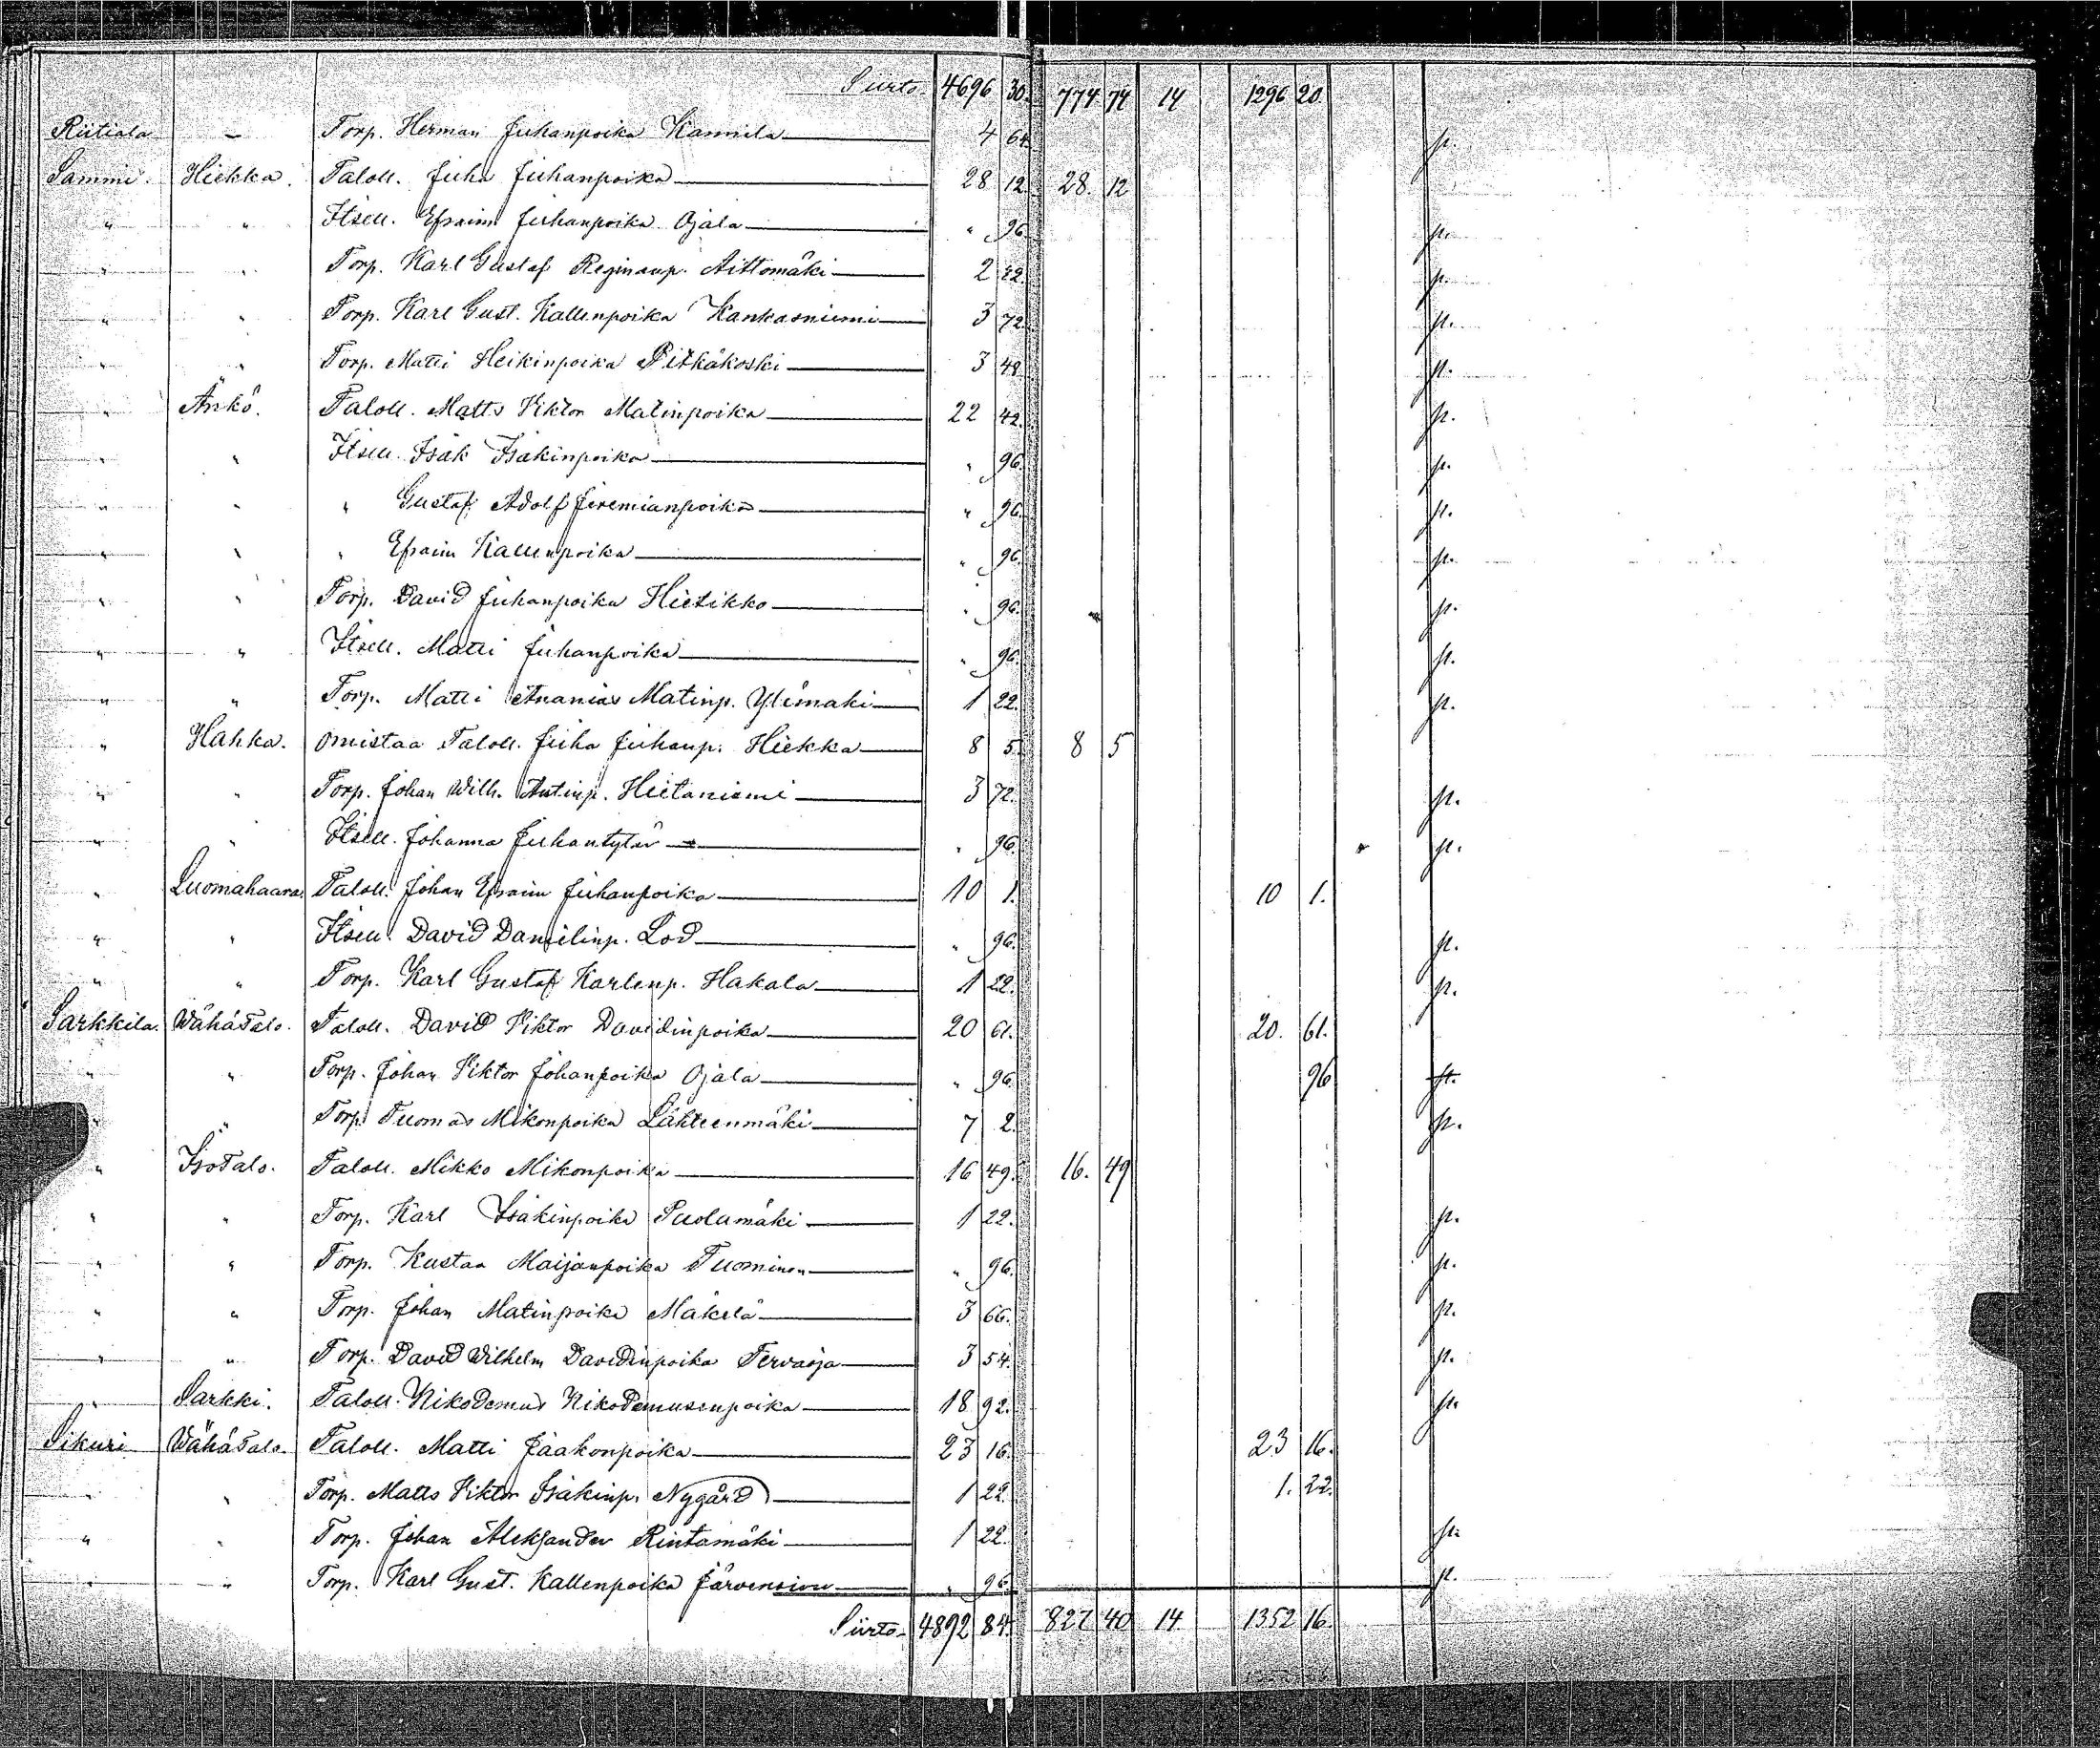 Siirto 4696 30. 774 74 14 1296 20
Riitiala - Torp. Herman Juhanpoika Kannila 4 64. pt.
Sammi. Hiekka. Taloll. Juha Juhanpoika 28 12. 28. 12
" " Itsell. Efraim Juhanpoika Ojala " 96. pt.
" " Torp. Karl Gustaf Reginanp. Aittomäki 2 22. pt.
" " Torp. Karl Gust. Kallenpoika Kankasniemi 3 72. pt.
" " Torp. Matti Heikinpoika Pitkäkoski 3 48. pt.
" Änkö. Taloll. Matts Viktor Matinpoika 22 42. pt.
" " Itsell. Isak Isakinpoika " 96. pt.
" " " Gustaf Adolf Jeremianpoika " 96. pt.
" " " Efraim Kallenpoika " 96. pt.
" " Torp. David Juhanpoika Hietikko " 96. pt.
" " Itsell. Matti Juhanpoika " 96. pt.
" " Torp. Matti Ananias Matinp. Ylimäki 1 22. pt.
" Hahka. Omistaa Taloll. Juha Juhanp. Hiekka 8 5. 8 5
" " Torp. Johan Wilh. Antinp. Hietaniemi 3 72. pt.
" " Itsell. Johanna Juhantytär " 96. pt.
" Luomahaara. Taloll. Johan Efraim Juhanpoika 10 1. 10 1.
" " Itsell. David Danielinp. Lod " 96. pt.
" " Torp. Karl Gustaf Karlenp. Hakala 1 22. pt.
Sarkkila. WähäTalo. Taloll. David Viktor Davidinpoika 20 61. 20. 61.
" " Torp. Johan Viktor Johanpoika Ojala " 96. 96 pt.
" " Torp. Tuomas Mikonpoika Lähteenmäki 7 2. pt.
" IsoTalo. Taloll. Mikko Mikonpoika 16 49. 16. 49
" " Torp. Karl Isakinpoika Puolamäki 1 22. pt.
" " Torp. Kustaa Maijanpoika Tuominen " 96. pt.
" " Torp. Johan Matinpoika Mäkelä 3 66. pt.
" " Torp. David Wilhelm Davidinpoika Tervaoja 3 54. pt.
" Sarkki. Taloll. Nikodemus Nikodemusenpoika 18 92. pt.
Sikuri WähäTalo. Taloll. Matti Jaakonpoika 23 16. 23 16.
" " Torp. Matts Viktor Isakinp. Nygård 1 22. 1. 22.
" " Torp. Johan Aleksander Rintamäki 1 22. pt.
" " Torp. Karl Gust. Kallenpoika Järvensivu " 96. pt.
Siirto 4892 84. 827 40 14. 1352 16.